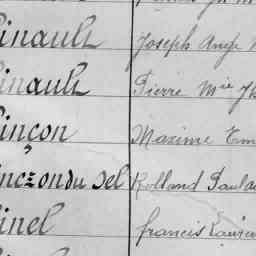 inault Joseph Ange
inault Pierre Mie
inçon Maxime Em
inczon du Sel Rolland
inel francis